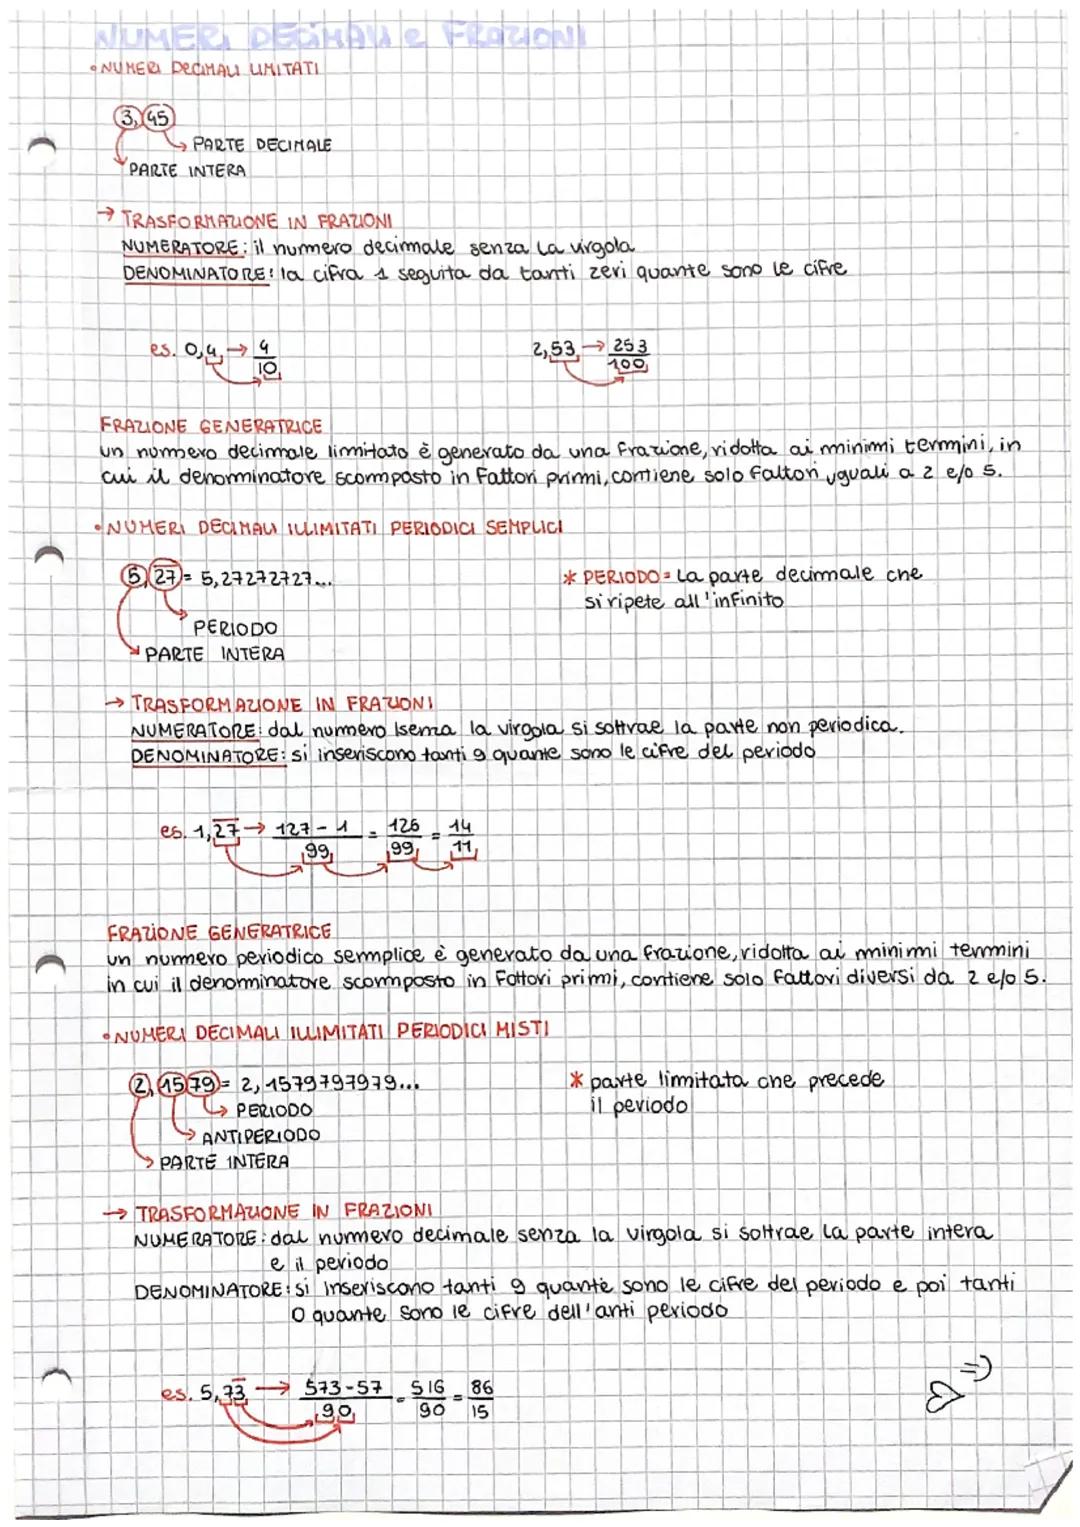 NUMERI DECIMALI e FRAZIONI
• NUMERI DECIMALI LIMITATI
3,45
→ PARTE DECIMALE
PARTE INTERA
→ TRASFORMAZIONE IN FRAZIONI
NUMERATORE: il numero decimale senza la virgola
DENOMINATORE: la cifra 1 seguita da tanti zeri quante sono le cifre
es. 0,4 → 4/10   2,53 → 253/100
FRAZIONE GENERATRICE
un numero decimale limitato è generato da una frazione, ridotta ai minimi termini, in
cui il denominatore scomposto in fattori primi, contiene solo fattori uguali a 2 e/o 5.
• NUMERI DECIMALI ILLIMITATI PERIODICI SEMPLICI
5,2̅7̅ = 5,27272727...
* PERIODO = la parte decimale che
si ripete all'infinito
PERIODO
PARTE INTERA
→ TRASFORMAZIONE IN FRAZIONI
NUMERATORE: dal numero senza la virgola si sottrae la parte non periodica.
DENOMINATORE: si inseriscono tanti 9 quante sono le cifre del periodo
es. 1,2̅7̅ → 127 - 1/99 = 126/99 = 14/11
FRAZIONE GENERATRICE
un numero periodico semplice è generato da una frazione, ridotta ai minimi termini
in cui il denominatore scomposto in fattori primi, contiene solo fattori diversi da 2 e/o 5.
• NUMERI DECIMALI ILLIMITATI PERIODICI MISTI
2,1579 = 2,1579797979...
* parte limitata che precede
il periodo
→ PERIODO
→ ANTIPERIODO
→ PARTE INTERA
→ TRASFORMAZIONE IN FRAZIONI
NUMERATORE: dal numero decimale senza la virgola si sottrae la parte intera
e il periodo
DENOMINATORE: si inseriscono tanti 9 quante sono le cifre del periodo e poi tanti
0 quante sono le cifre dell'anti periodo
es. 5,73̅ → 573-57/90 = 516/90 = 86/15
=)